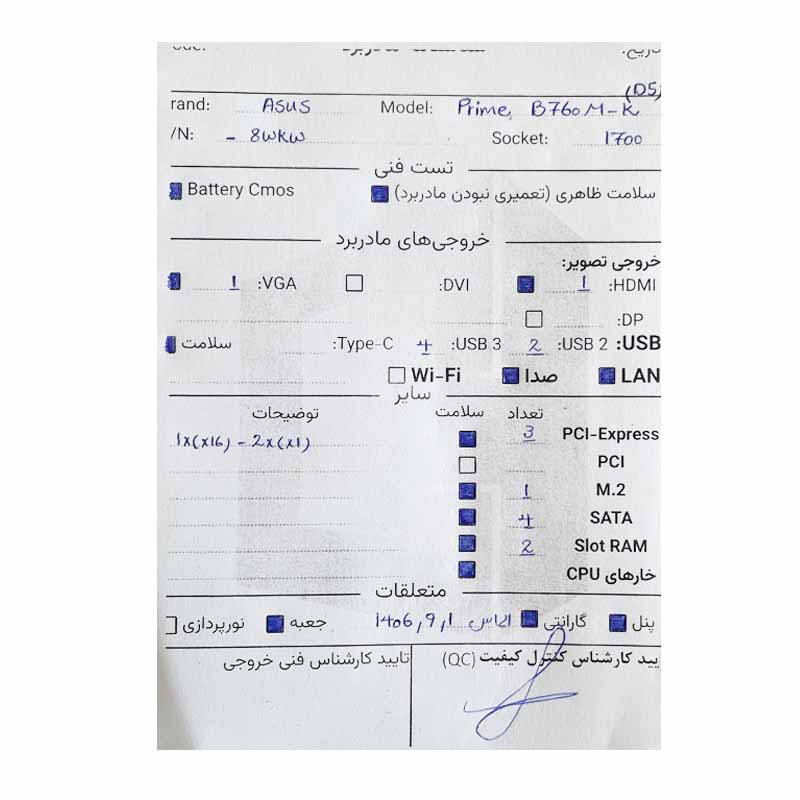 (D5)
rand: ASUS Model: Prime, B760M-K
/N: - 8WKW Socket: 1700
تست فنی
سلامت ظاهری (تعمیری نبودن مادربرد) Battery Cmos
خروجی‌های مادربرد
خروجی تصویر:
HDMI: 1 DVI: VGA: 1
DP:
USB: USB 2: 2 USB 3: 4 Type-C: سلامت
LAN صدا Wi-Fi
سایر
تعداد سلامت توضیحات
PCI-Express 3 1x(x16) - 2x(x1)
PCI
M.2 1
SATA 4
Slot RAM 2
خارهای CPU
متعلقات
پنل گارانتی الماس 1406,9,1 جعبه نورپردازی
یید کارشناس کنترل کیفیت (QC) تایید کارشناس فنی خروجی